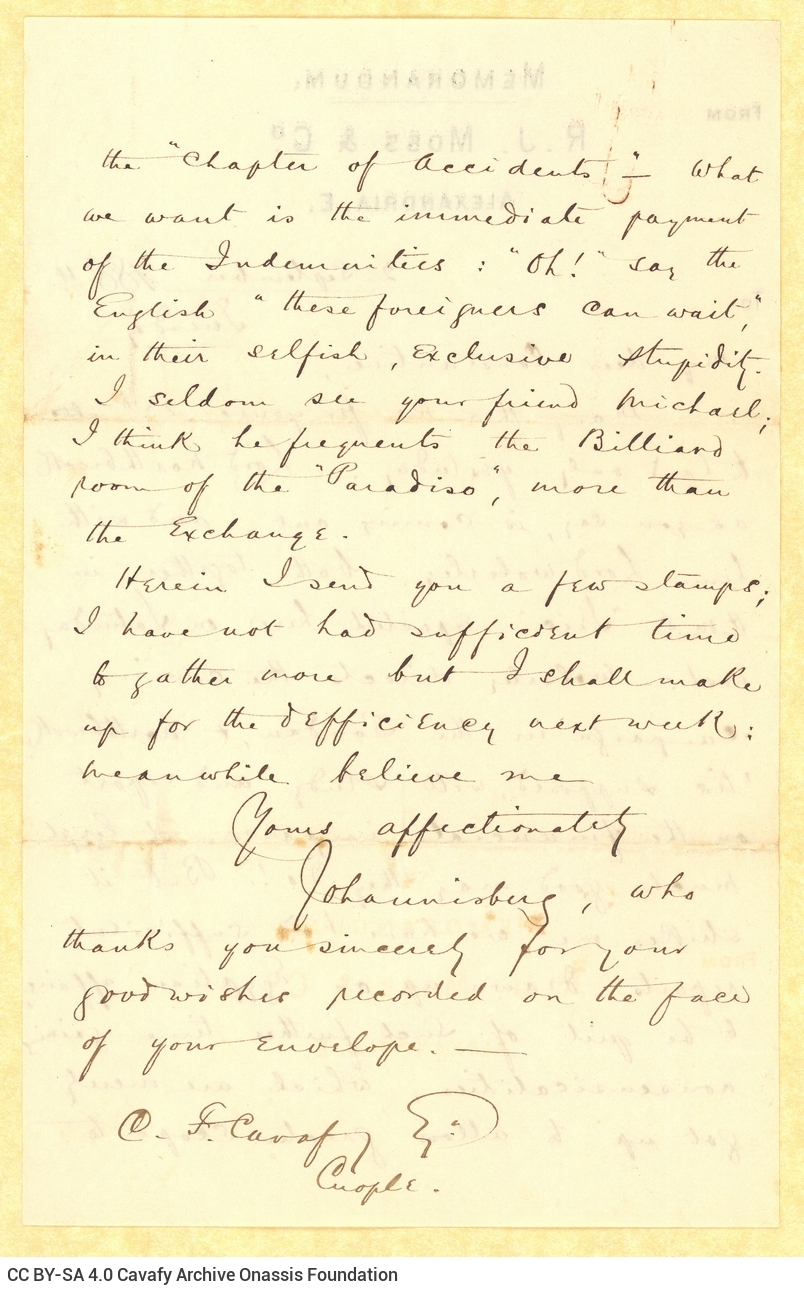 MEMORANDUM.
FROM
R. J. Moss & Co
ALEXANDRIA.
the "Chapter of Accidents" — What
we want is the immediate payment
of the Indemnities : "Oh!" say the
English "these foreigners can wait,"
in their selfish, exclusive stupidity.
I seldom see your friend Michael;
I think he frequents the Billiard
room of the "Paradiso", more than
the Exchange.
Herein I send you a few stamps;
I have not had sufficient time
to gather more but I shall make
up for the defficiency next week:
meanwhile believe me
Yours affectionately
Johannisberg, who
thanks you sincerely for your
good wishes recorded on the face
of your envelope. —
C. F. Cavafy Eq:
Cnople.
CC BY-SA 4.0 Cavafy Archive Onassis Foundation